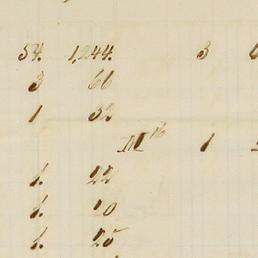 54. 1,244. 3
3 66
1 32
III 16 1
1. 22
1. 20
1. 25